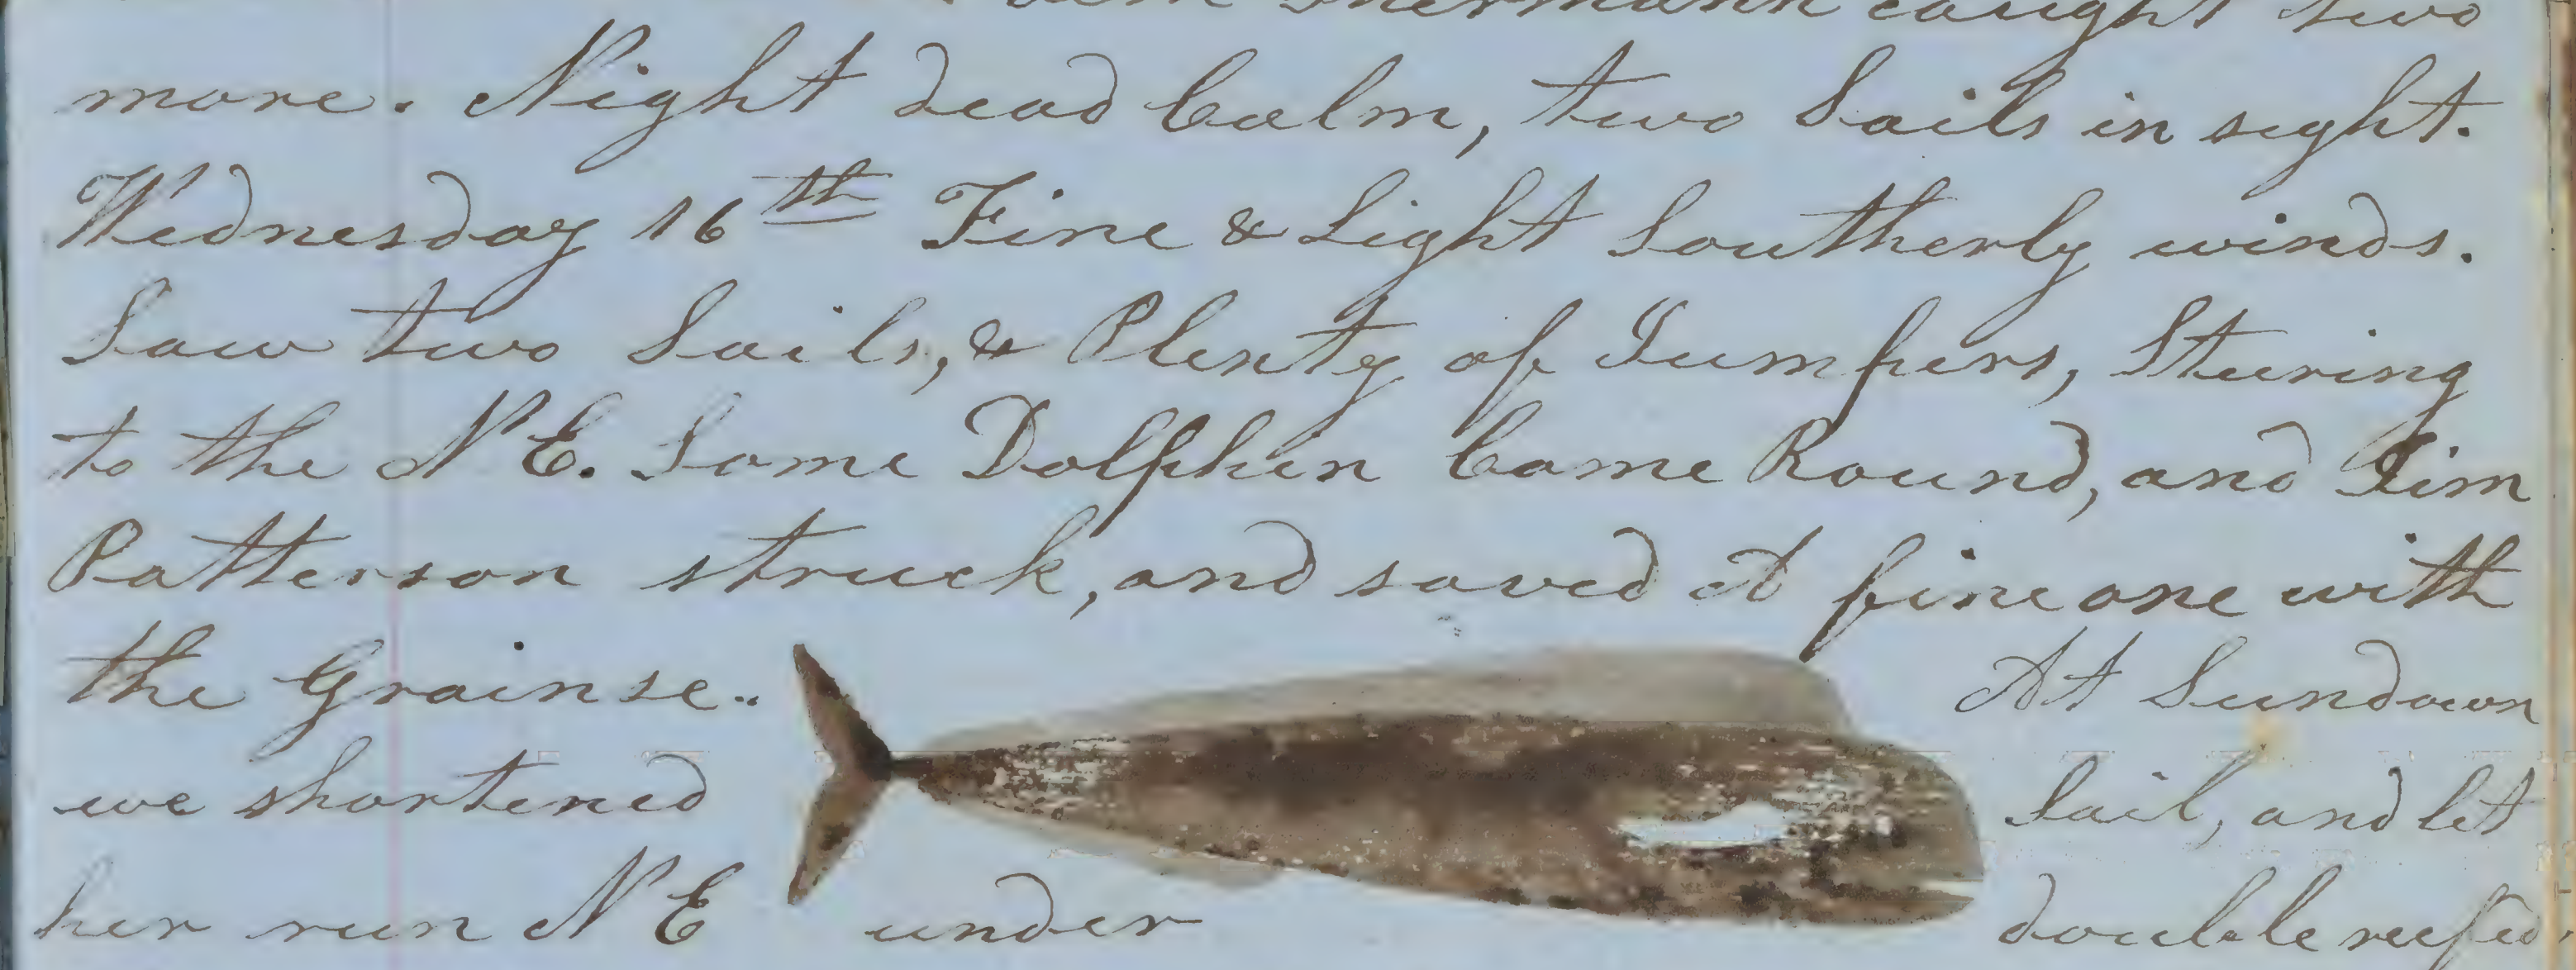 Shermann caught two
more. Night dead Calm, two Sails in sight.
Wednesday 16th Fine & Light Southerly winds.
Saw two Sails, & Plenty of Jumpers, Stearing
to the N E. Some Dolphin Came Round, and Jim
Patterson struck, and saved A fine one with
the Grainse.. At Sundown
we shortened Sail, and let
her run N E under double reefed